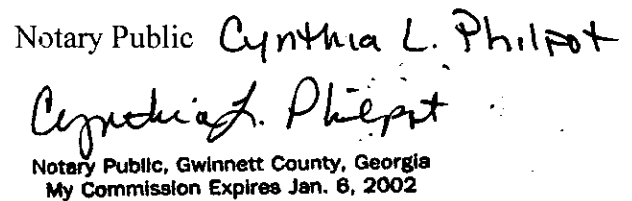 Notary Public Cynthia L. Philpot
Cynthia L. Philpot
Notary Public, Gwinnett County, Georgia
My Commission Expires Jan. 6, 2002